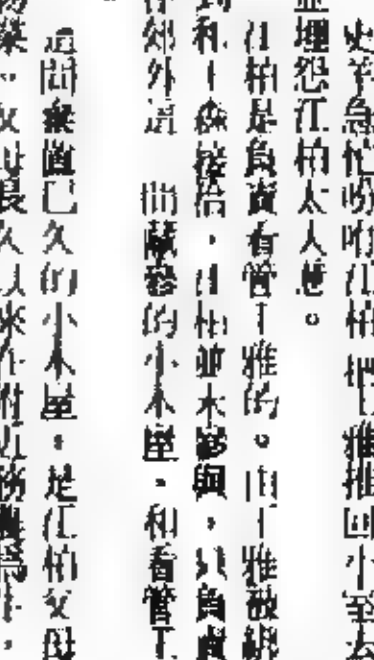 史羊急忙吩咐江柏把丁雅推回小至去
並埋怨江柏太人意。
江柏是負責看管丁雅的。由丁雅被綁
到和丨森接洽,江柏並未參與,只負責
郊外這間蔽舊的小木屋,和看管丁
這間棄置已久的小木屋,是江柏父母
物築。父母長久以來在附近務農為生,